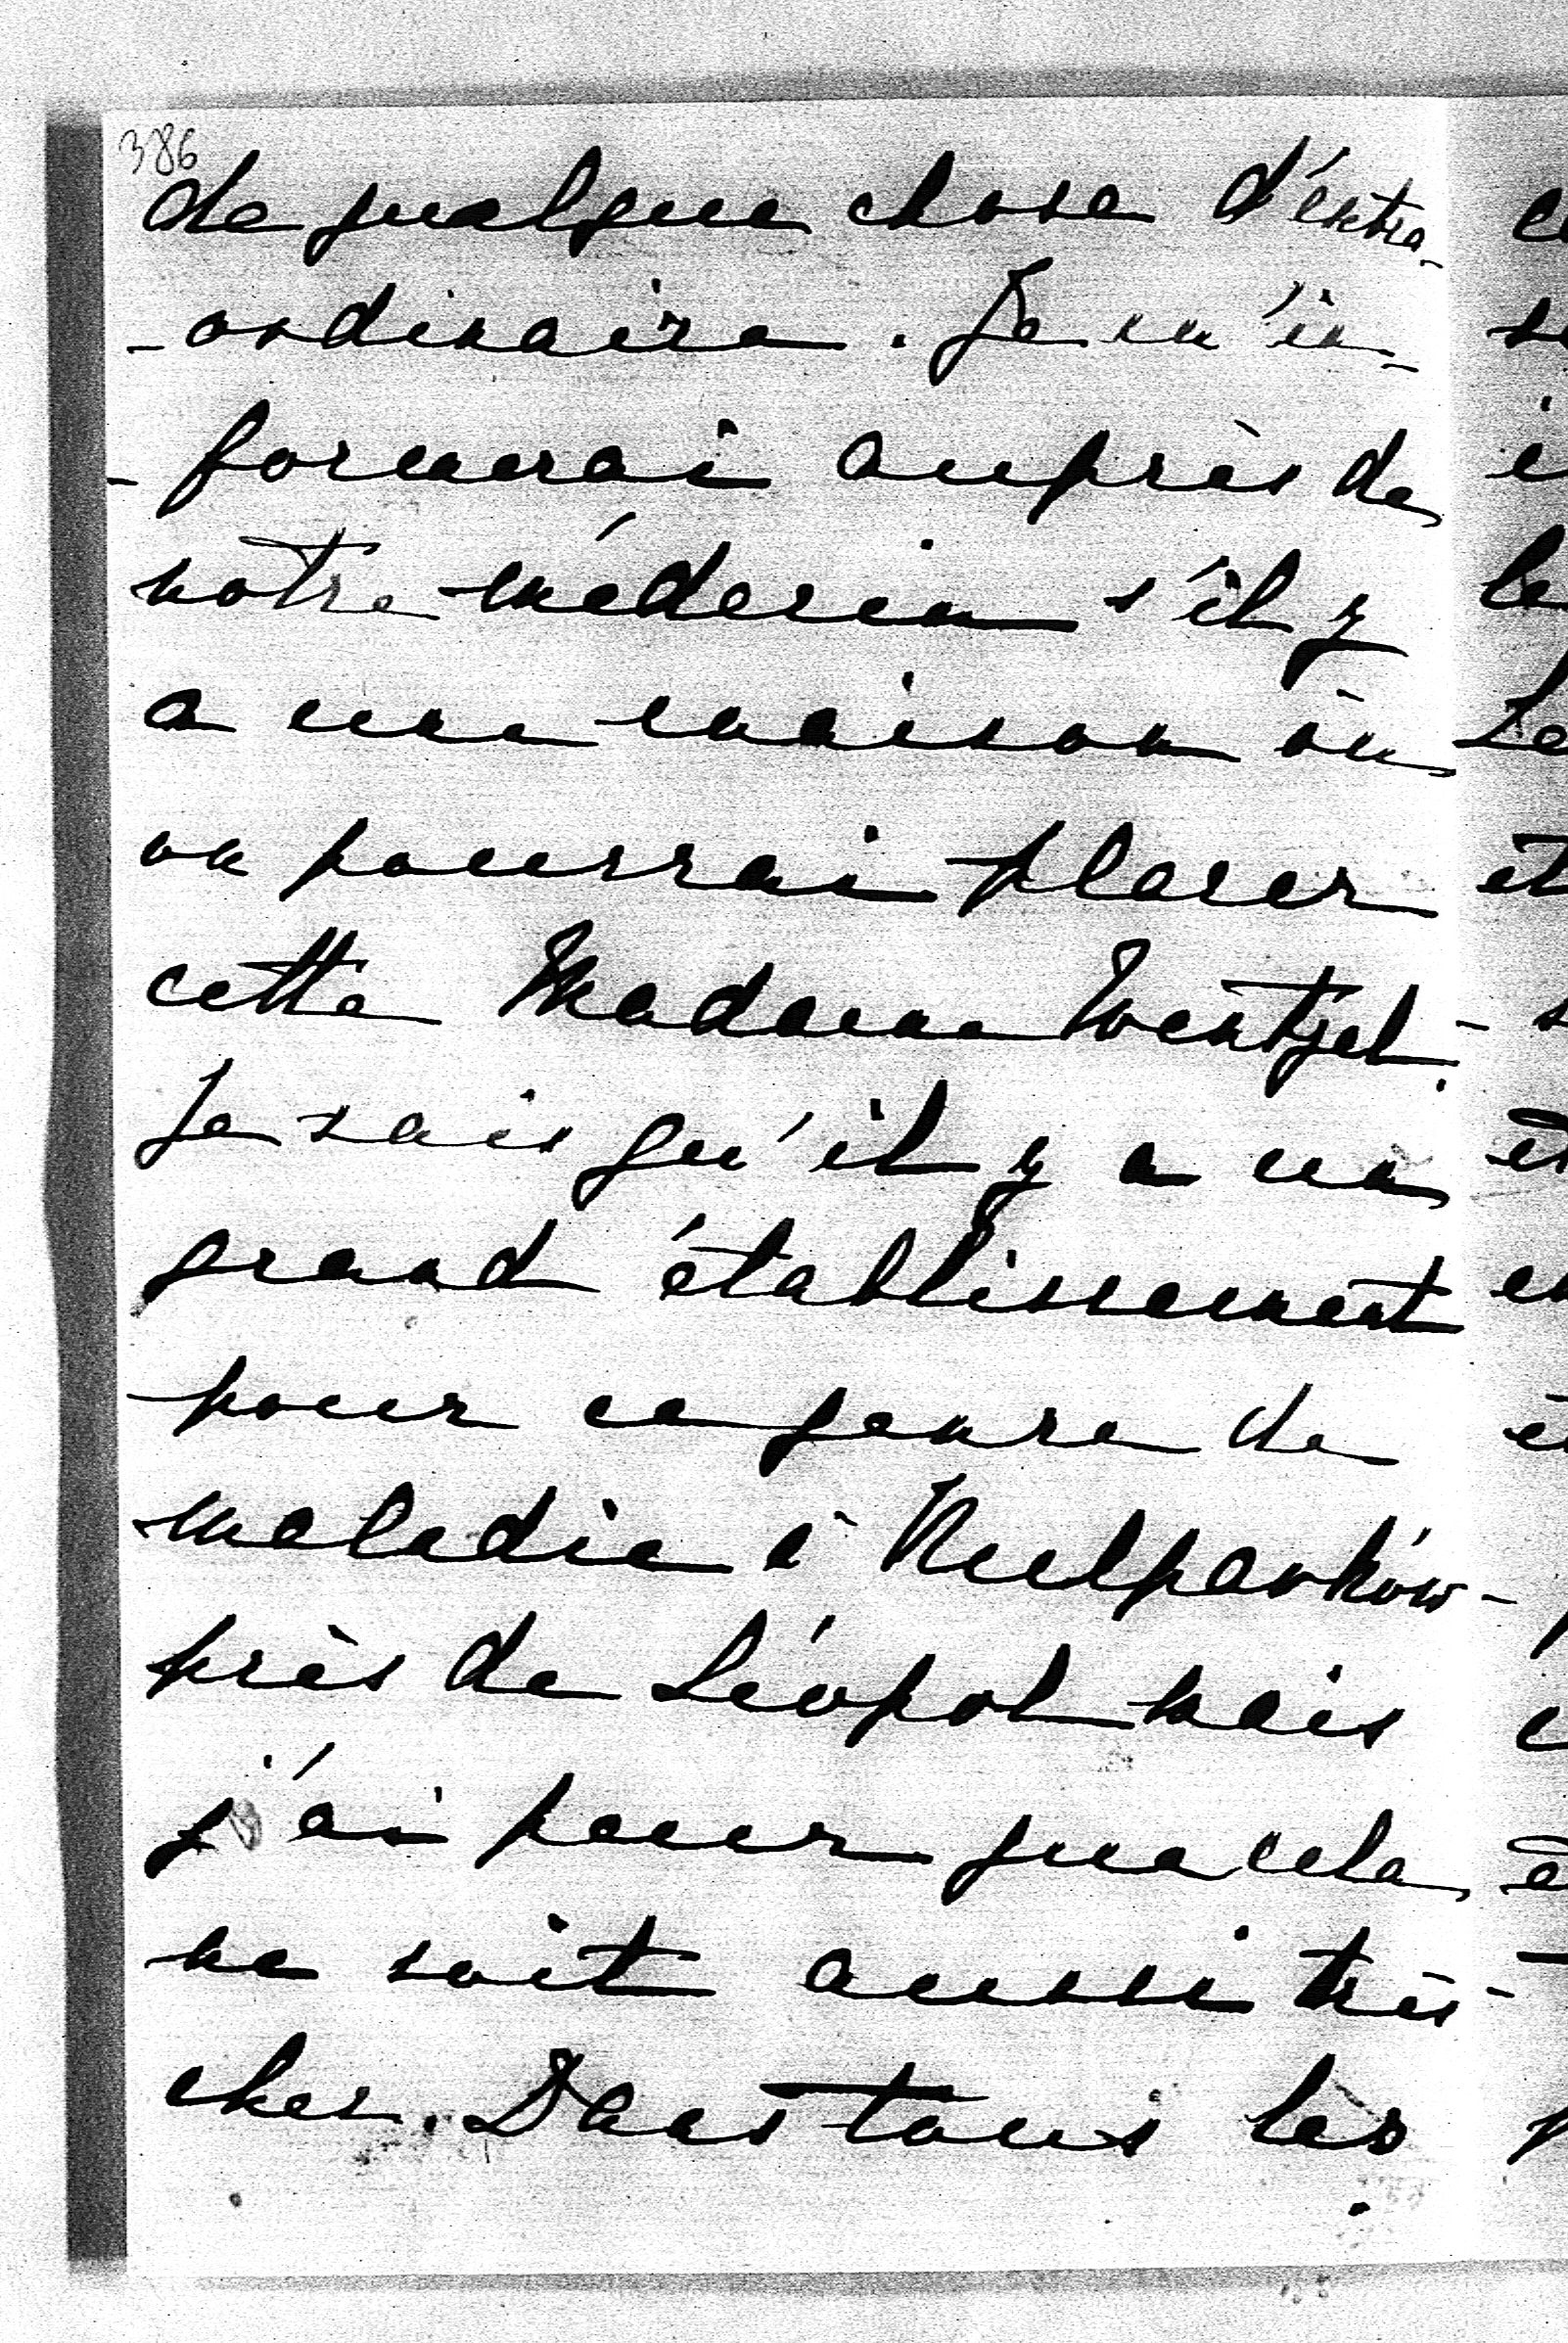 386
de quelque chose d'extra-
-ordinaire. Je m'in-
-formerai auprès de
notre médecin s'il y
a une maison où
on pourrai placer
cette Madame Wentzel -
Je sais qu'il y a un
grand établissement
pour ce genre de
maladie à Kulparków -
près de Léopol mais
j'ai peur que cela
ne soit aussi très -
cher. Dans tous les